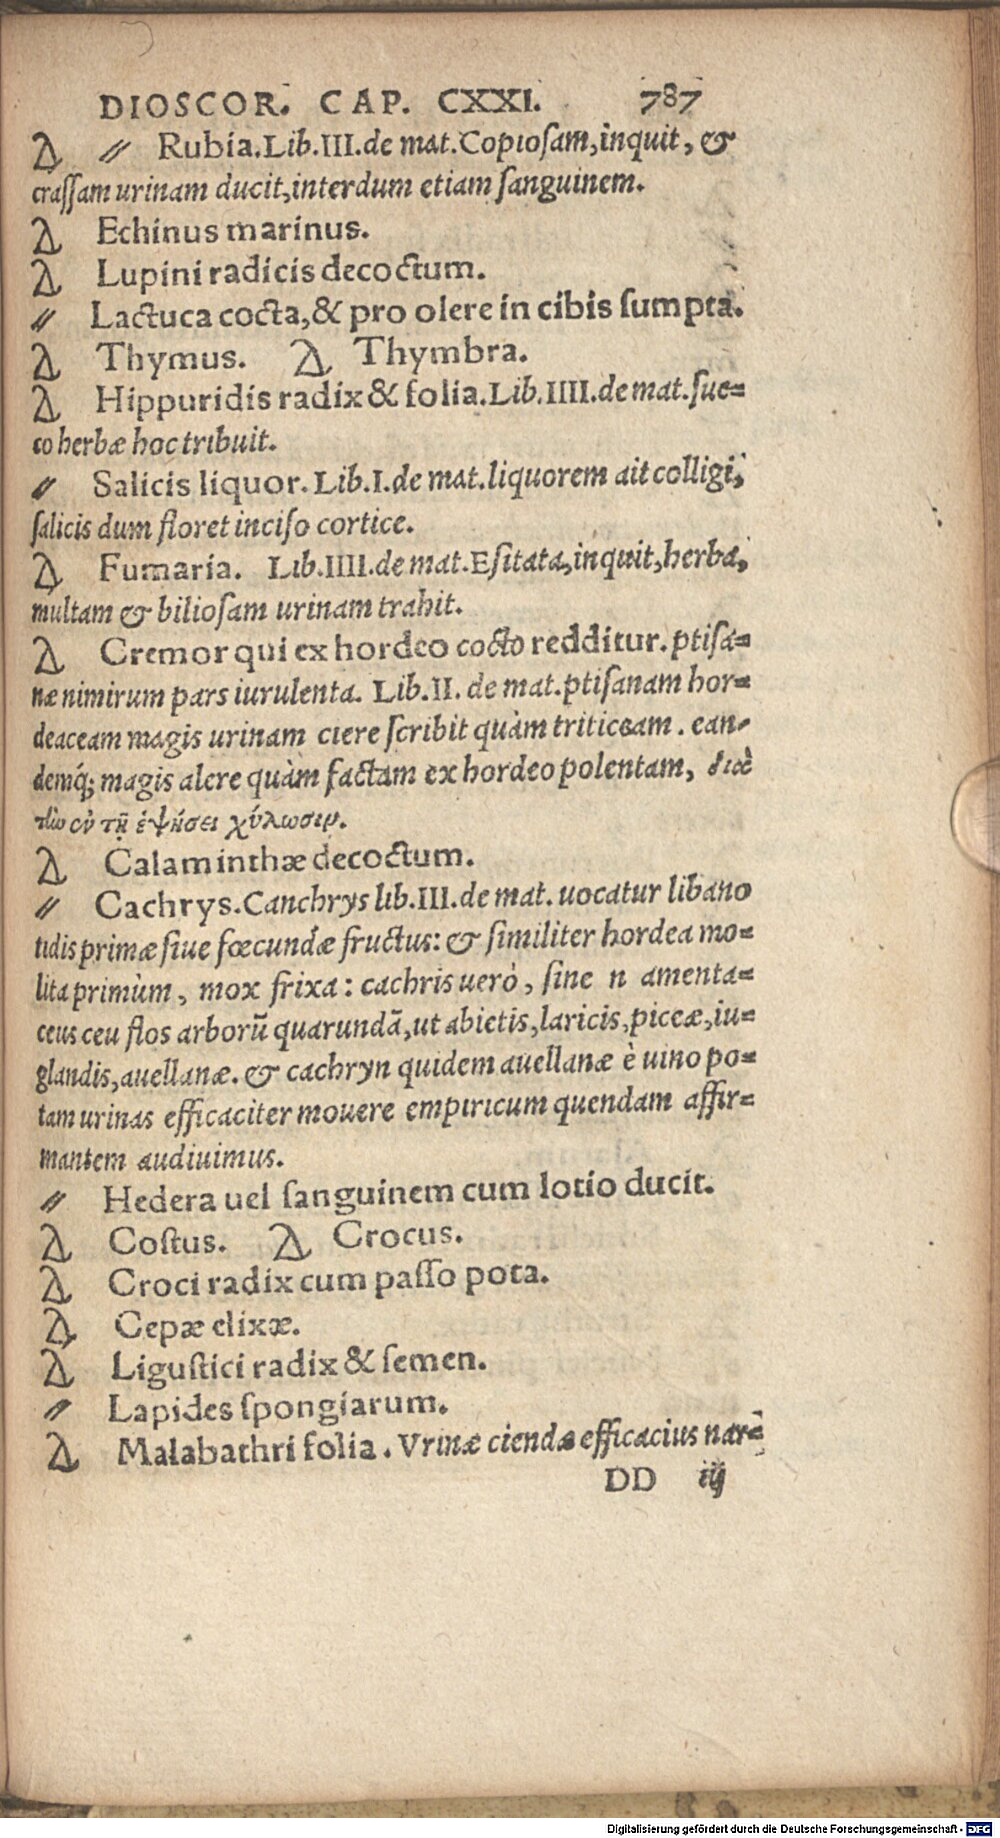 DIOSCOR. CAP. CXXI. 787
Δ〟 Rubia. Lib. III. de mat. Copiosam, inquit, &
crassam urinam ducit, interdum etiam sanguinem.
Δ Echinus marinus.
Δ Lupini radicis decoctum.
〟 Lactuca cocta, & pro olere in cibis sumpta.
Δ Thymus. Δ Thymbra.
Δ Hippuridis radix & folia. Lib. IIII. de mat. suc=
co herbæ hoc tribuit.
〟 Salicis liquor. Lib. I. de mat. liquorem ait colligi,
salicis dum floret inciso cortice.
Δ Fumaria. Lib. IIII. de mat. Esitata, inquit, herba,
multam & biliosam urinam trahit.
Δ Cremor qui ex hordeo cocto redditur. ptisa=
næ nimirum pars iurulenta. Lib. II. de mat. ptisanam hor=
deaceam magis urinam ciere scribit quàm triticeam. ean=
demq́; magis alere quàm factam ex hordeo polentam, διὰ
τἰὼ ἐν τῇ ἑψήσει χύλωσιμ.
Δ Calaminthæ decoctum.
〟 Cachrys. Canchrys lib. III. de mat. uocatur libano
tidis primæ siue fœcundæ fructus: & similiter hordea mo=
lita primùm, mox frixa: cachris uerò, sine n amenta=
ceus ceu flos arborũ quarundã, ut abietis, laricis, piceæ, iu=
glandis, auellanæ. & cachryn quidem auellanæ è uino po=
tam urinas efficaciter mouere empiricum quendam affir=
mantem audiuimus.
〟 Hedera uel sanguinem cum lotio ducit.
Δ Costus. Δ Crocus.
Δ Croci radix cum passo pota.
Δ Cepæ elixæ.
Δ Ligustici radix & semen.
〟 Lapides spongiarum.
Δ Malabathri folia. Vrinæ ciendæ efficacius nar=
DD iij
Digitalisierung gefördert durch die Deutsche Forschungsgemeinschaft - DFG